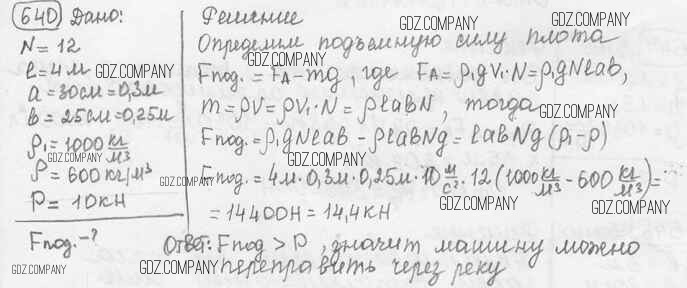 640 Дано:
N = 12
l = 4 м
a = 30см = 0,3м
b = 25см = 0,25м
ρ₁ = 1000 кг/м³
ρ = 600 кг/м³
P = 10кН
Fпод. - ?
Решение
GDZ.COMPANY
Определим подъемную силу плота
Fпод. = FA - mg, где FA = ρ₁gV₁·N = ρ₁gNlab,
m = ρV = ρV₁·N = ρlabN, тогда
Fпод. = ρ₁gNlab - ρlabNg = labNg(ρ₁ - ρ)
Fпод. = 4м·0,3м·0,25м·10 м/с²·12(1000 кг/м³ - 600 кг/м³) =
= 14400Н = 14,4кН
Ответ: Fпод > P, значит машину можно
переправить через реку
GDZ.COMPANY
GDZ.COMPANY
GDZ.COMPANY
GDZ.COMPANY
GDZ.COMPANY
GDZ.COMPANY
GDZ.COMPANY
GDZ.COMPANY
GDZ.COMPANY
GDZ.COMPANY
GDZ.COMPANY
GDZ.COMPANY